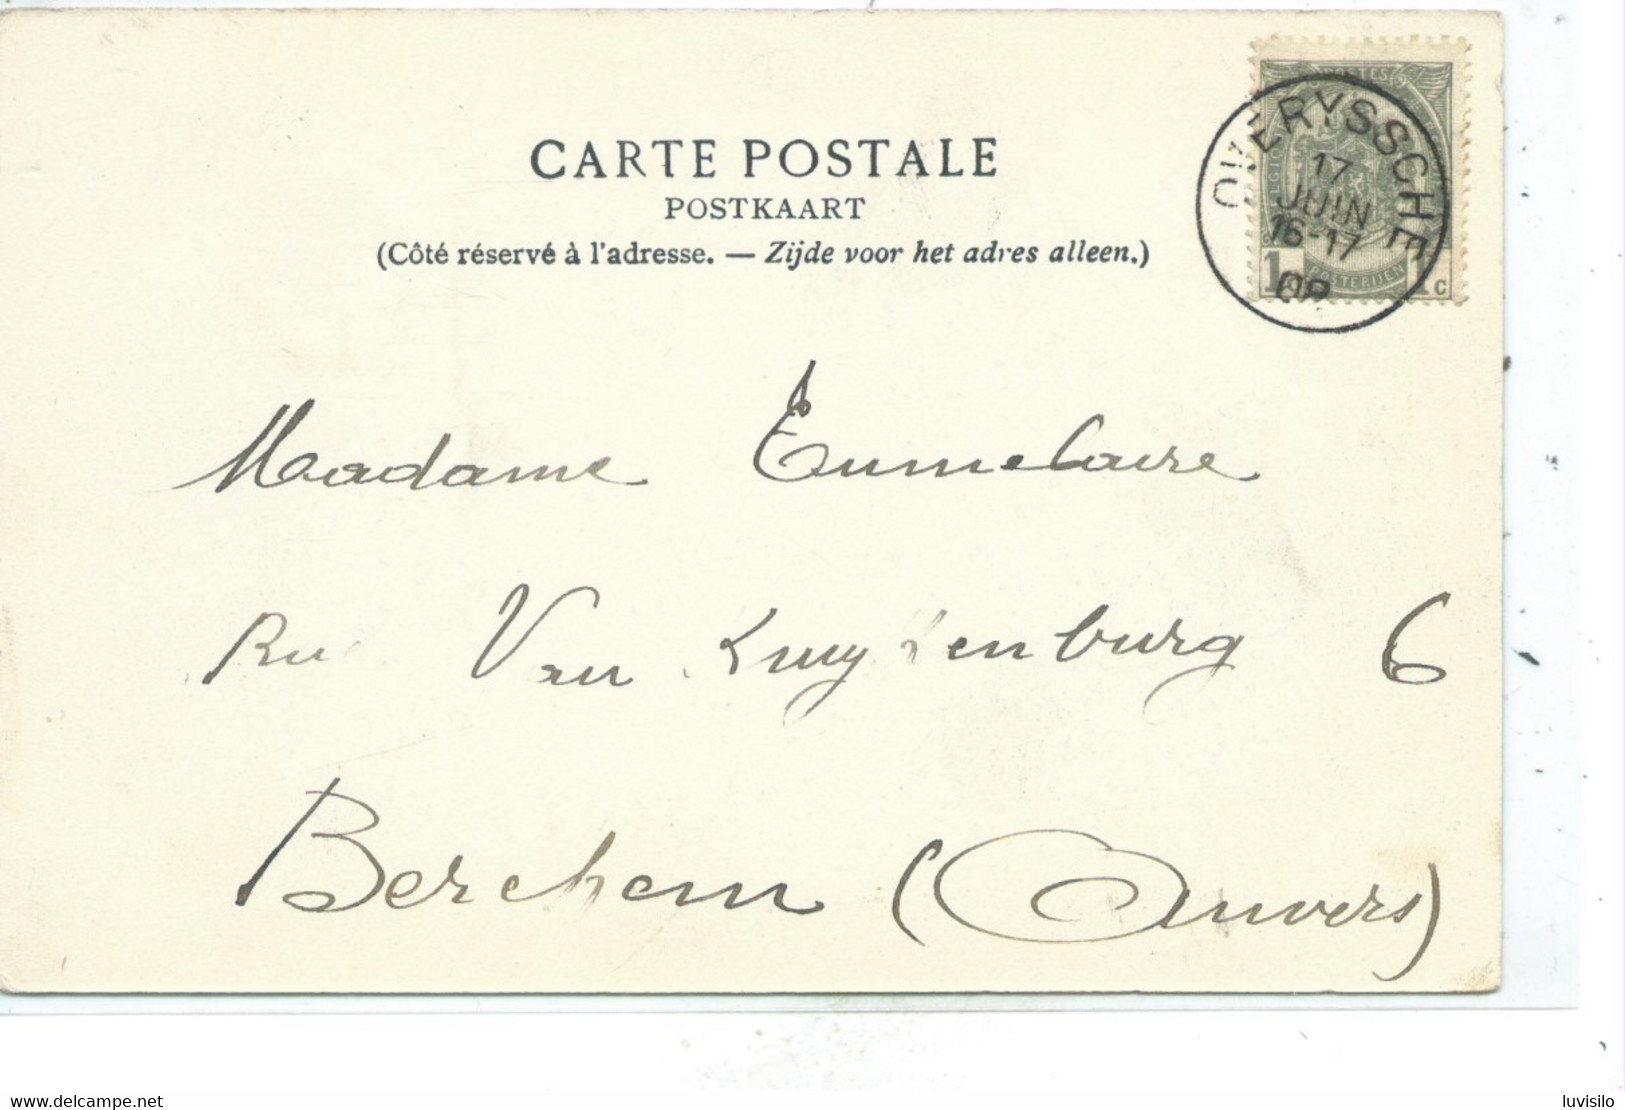 CARTE POSTALE
POSTKAART
(Côté réservé à l'adresse. — Zijde voor het adres alleen.)
POSTES
OVERYSSCHE
17
JUIN
16-17
08
1 POSTERIJEN 1c
Madame
Rue Van Kuyckenburg 6
Berchem (Anvers)
www.delcampe.net
luvisilo